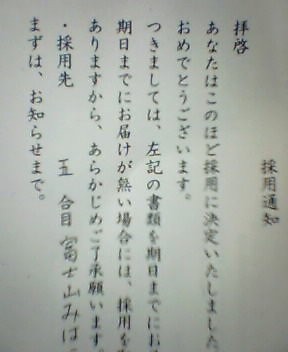 採用通知
拝啓
あなたはこのほど採用に決定いたしました
おめでとうございます。
つきましては、左記の書類を期日までにお
期日までにお届けが無い場合には、採用を
ありますから、あらかじめご了承願います。
・採用先 五合目富士山みは
まずは、お知らせまで。